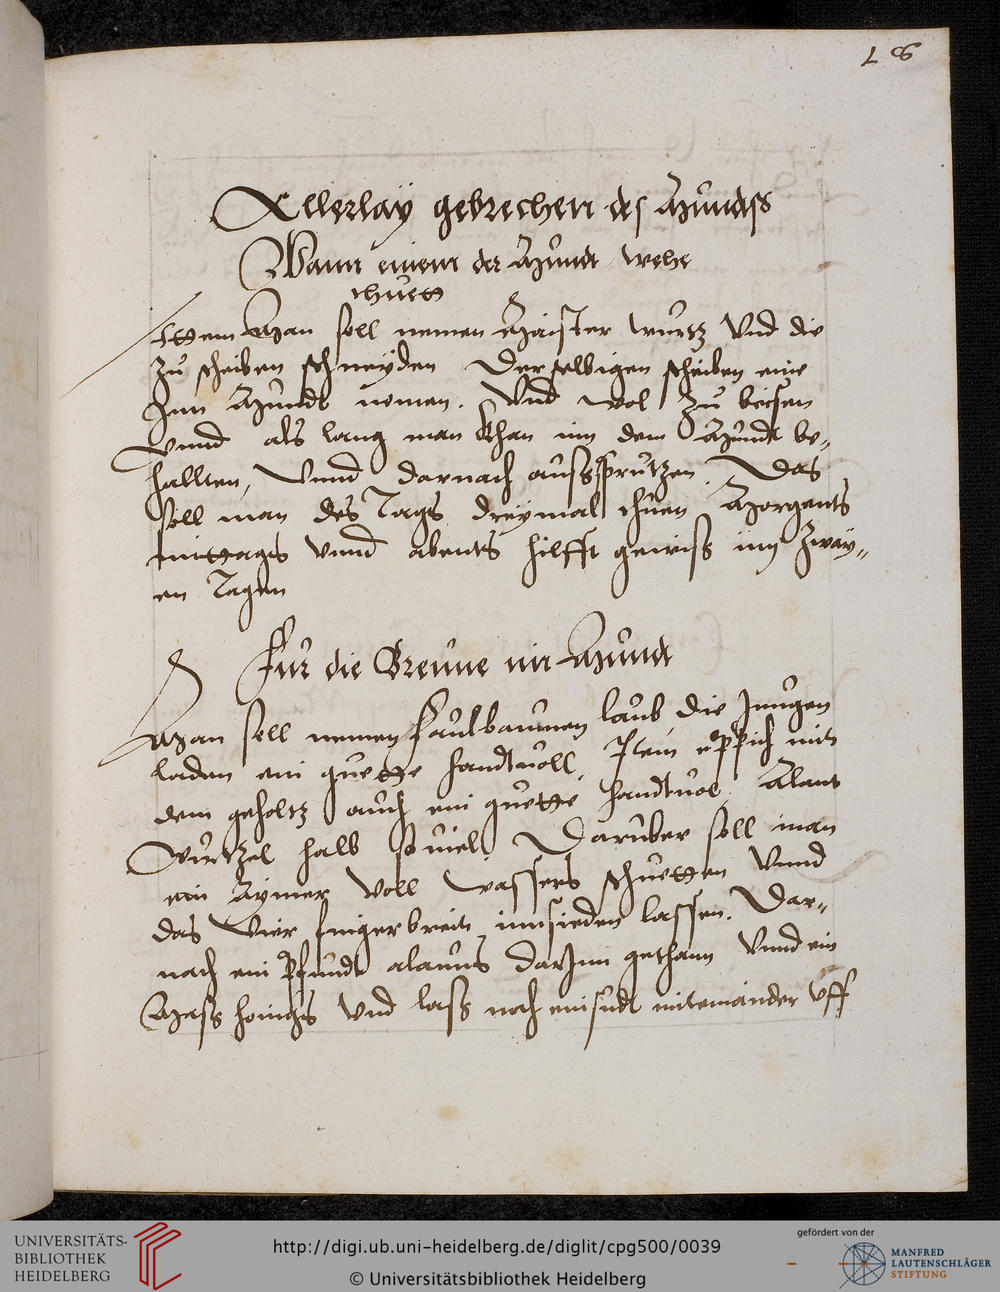 18
Allerlaÿ gebrechen des Mundts
Wann einem der Mundt wehe
thuett
Ittem Man soll nemen Maister wurtz Vnd die
Zu scheiben schneÿden Derselbigen scheiben eine
Inn Mundt nemen. Vnd wol Zu beisen
Vnnd als lang man khan im dem Mundt be-
hallten, Vnnd darnach ausssprutzen. Das
soll man des Tags dreÿmal thuen Morgents
mittags Vnnd abents hilfft gewiss inn Zwaÿ-
en Tagen
Fur die Breune im Mundt
Man soll nemen faulbaumen laub die Jungen
laden ein guette handtuoll, Item eppich mit
dem geholtz auch ein guette handtuol. Alant
Wurtzel halb souiel Daruber soll man
ein Aÿmer Voll wassers schuetten Vnnd
das Vier finger breit, innsieden lassen. Dar-
nach ein Pfundt alauns darInn gethann Vnnd ein
Mass honigs Vnd lass noch ein sudt miteinander vff
UNIVERSITÄTS-
BIBLIOTHEK
HEIDELBERG
http://digi.ub.uni-heidelberg.de/diglit/cpg500/0039
© Universitätsbibliothek Heidelberg
gefördert von der
MANFRED
LAUTENSCHLÄGER
STIFTUNG